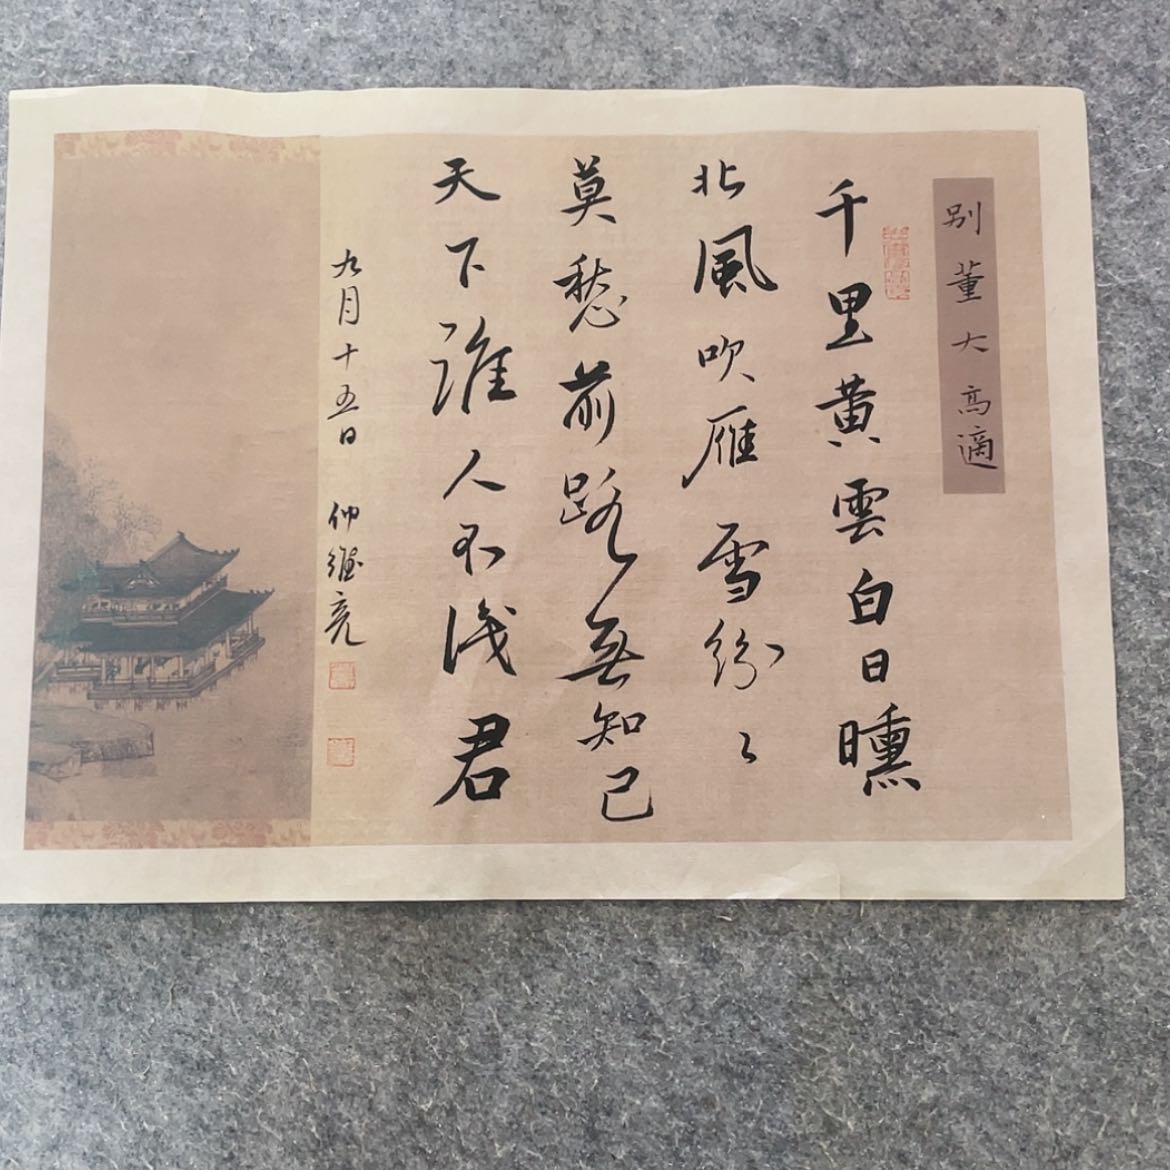 別董大高適
千里黄雲白日曛
北風吹雁雪紛〻
莫愁前路無知己
天下誰人不識君
九月十五日 仲繼亮